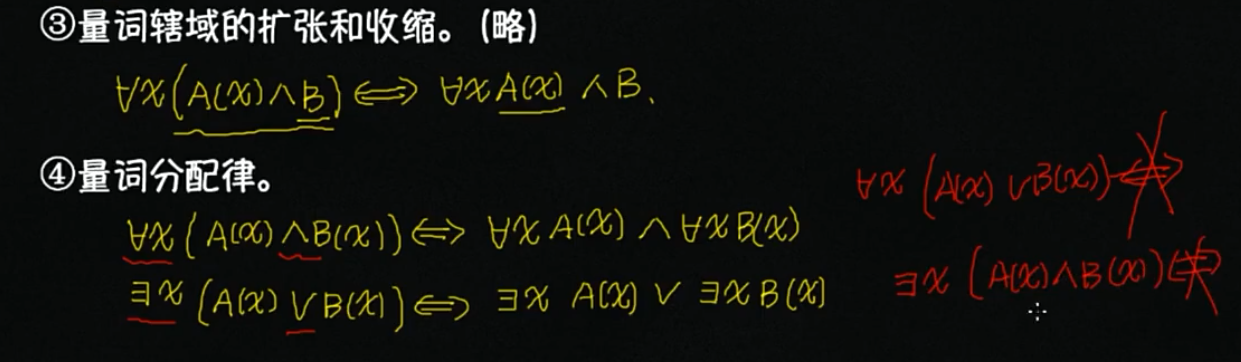 ③量词辖域的扩张和收缩。(略)
∀x(A(x)∧B)⟺ ∀xA(x) ∧B、
④量词分配律。
∀x(A(x)∧B(x))⟺ ∀xA(x)∧∀xB(x)
∃x(A(x)∨B(x))⟺ ∃x A(x)∨ ∃xB(x)
∀x(A(x)∨B(x))⇎
∃x(A(x)∧B(x))⇎